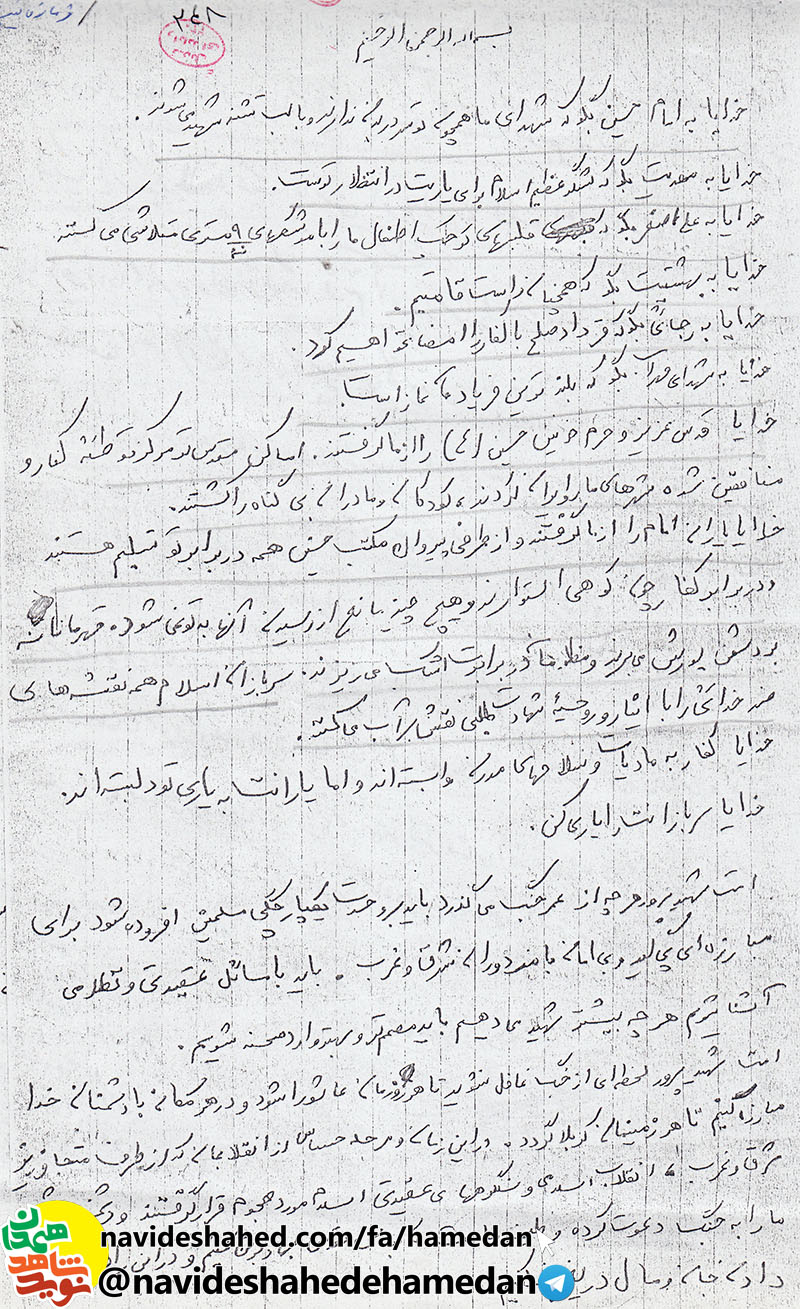 ۳۴۸
بسم الله الرحمن الرحیم
خدایا به امام حسین بگو که شهدای ما همچون تو سر در بدن ندارند و با لب تشنه شهید می شوند.
خدایا به مهدیت بگو که لشگر عظیم اسلام برای یاریت در انتظار توست.
خدایا به علی اصغر بگو که قلبهای کوچک اطفال ما را با موشکهای ۹ متری متلاشی می کنند
خدایا به بهشتیت بگو که همچنان راست قامتیم.
خدایا به رجائی بگو که قرداد صلح با کفار را امضا نخواهیم کرد.
خدایا به شهدای محراب بگو که بلند ترین فریاد ما نماز است.
خدایا قدس عزیز و حرم خونین حسین (ع) را از ما گرفتند. اماکن مقدس تو مرکز توطئه کفار و
منافقین شده شهرهای ما را ویران کردند، کودکان و مادران بی گناه را کشتند.
خدایا یاران امام را از ما گرفتند و از طرفی پیروان مکتب حسین همه در برابر تو تسلیم هستند
و در برابر کفار چون کوهی استوارند و هیچ چیز مانع از رسیدن آنها به تو نمی شود. قهرمانانه
بر دشمن یورش می برند و مظلومانه در برابرت اشک می ریزند. سربازان اسلام همه نقشه های
ضد خدائی را با ایثار و روحیۀ شهادت طلبی نقش بر آب می کنند.
خدایا کفار به مادیات و سلاحهای مدرن وابسته اند و اما یارانت به یاری تو دلبسته اند.
خدایا سربازانت را یاری کن.
امت شهید پرور هر چه از عمر جنگ می گذرد باید بر وحدت یکپارچگی مسلمین افزوده شود برای
مبارزه ای پی گیر و بی امان با مزدوران شرق و غرب. باید با مسائل عقیدتی و نظامی
آشنا شویم هر چه بیشتر شهید می دهیم باید مصمم تر و بهتر وارد صحنه شویم.
امت شهید پرور لحظه ای از جنگ غافل نشوید تا هر روزمان عاشورا شود و در هر مکان با دشمنان خدا
مبارزه کنیم تا هر زمینمان کربلا گردد. در این زمان و مرحله حساس از انقلابمان که از طرف متجاوزین
شرق و غرب، انقلاب اسلامی و سنگرهای عقیدتی اسلام مورد هجوم قرار گرفتند و
ما را به جنگ دعوت کرده و
دادن جان و مال
نوید شاهد همدان
navideshahed.com/fa/hamedan
@navideshahedehamedan